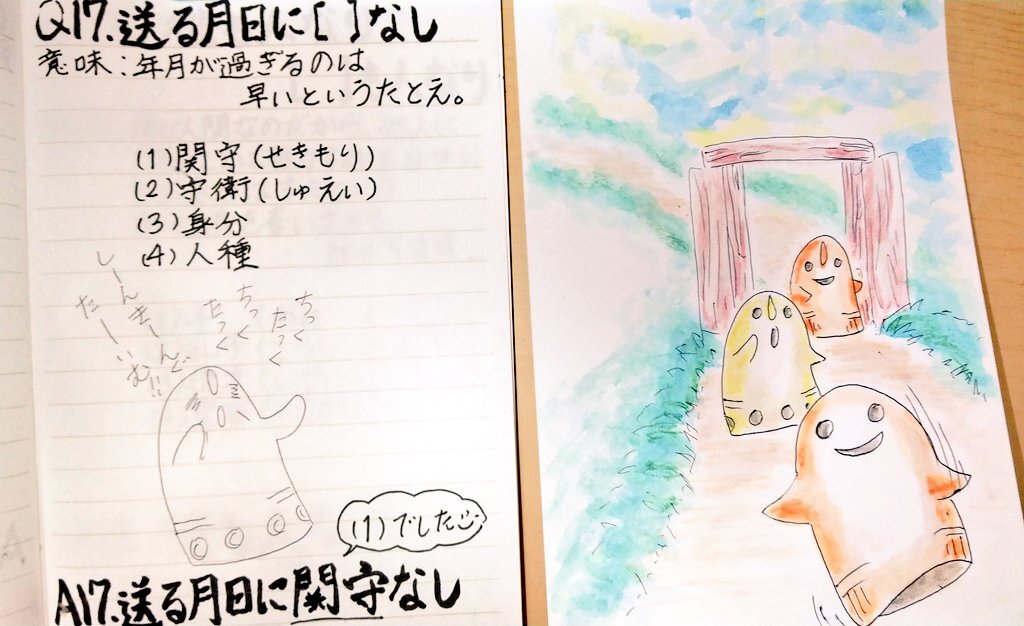 Q17.送る月日に[ ]なし
意味:年月が過ぎるのは
早いというたとえ。
(1)関守(せきもり)
(2)守衛(しゅえい)
(3)身分
(4)人種
しーんきーんぐ
たーーいむ!!
ちっく
たっく
ちっく
たっく
(1)でした
A17.送る月日に関守なし